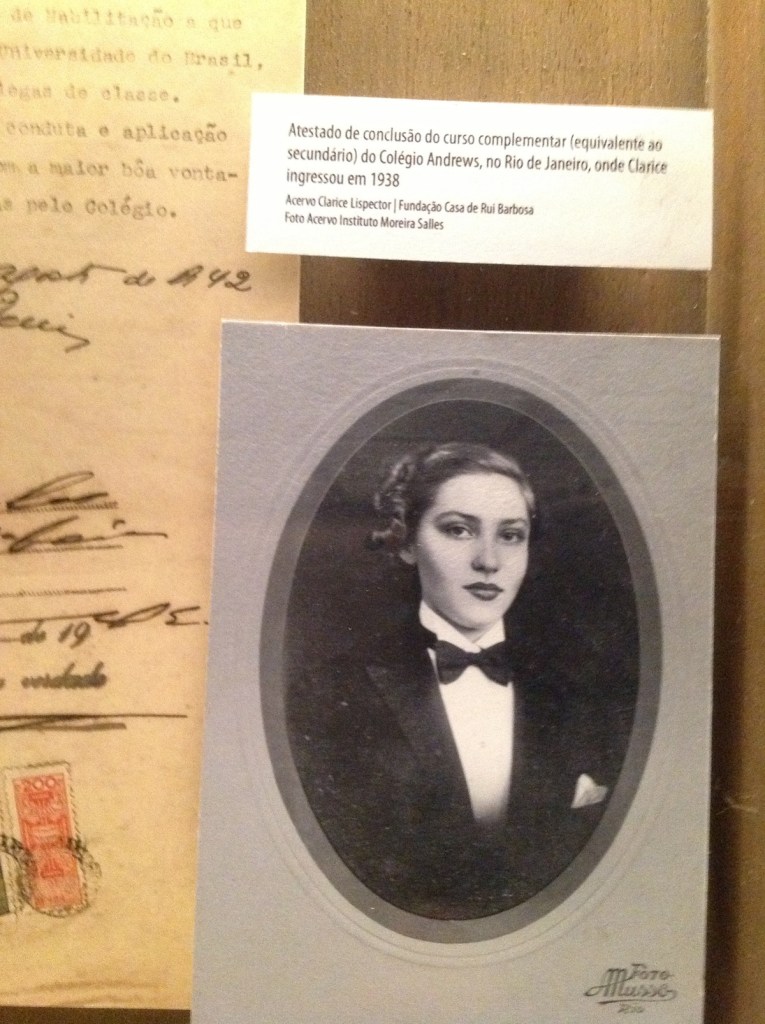 de Habilitação a que
Universidade do Brasil,
legas de classe.
conduta e aplicação
a maior bôa vonta-
pelo Colégio.
de 1942
de 19
verdade
200
Atestado de conclusão do curso complementar (equivalente ao
secundário) do Colégio Andrews, no Rio de Janeiro, onde Clarice
ingressou em 1938
Acervo Clarice Lispector | Fundação Casa de Rui Barbosa
Foto Acervo Instituto Moreira Salles
FOTO
Musso
Rio